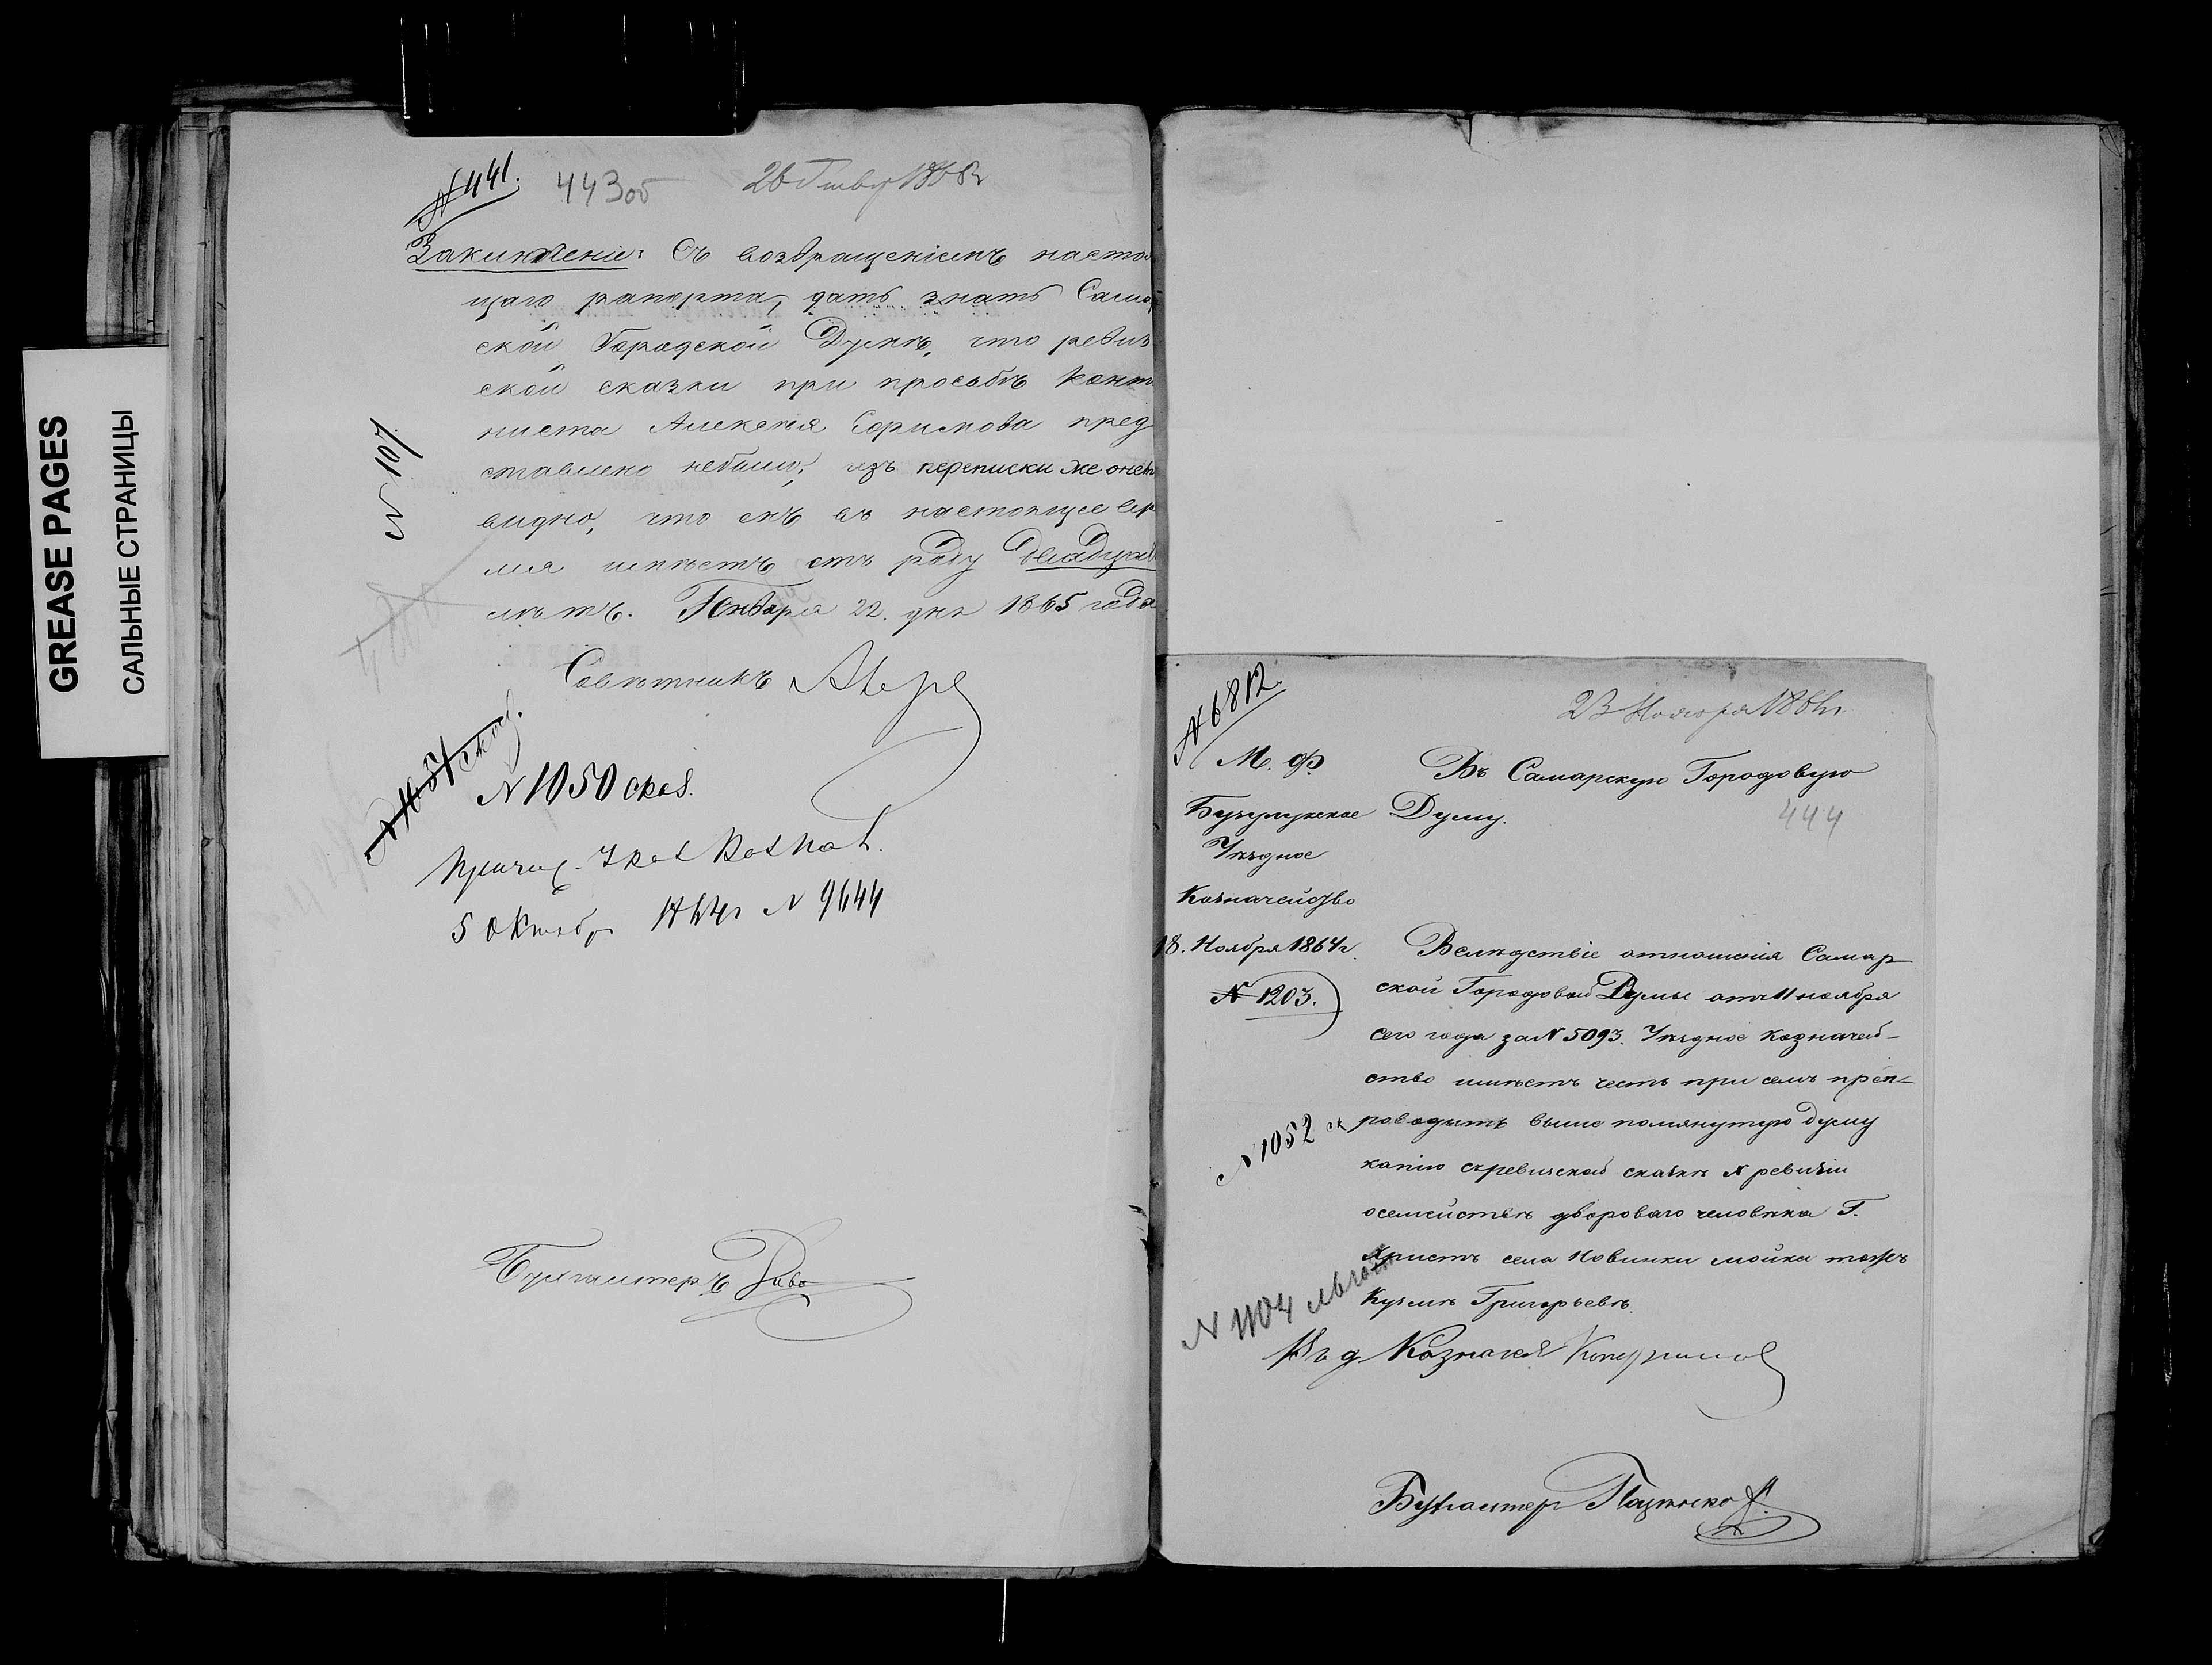 GREASE PAGES
САЛЬНЫЕ СТРАНИЦЫ
№ 441.
443об
Заключеніе: Съ возвращеніемъ настоя
щаго рапорта, дать знать Самар
ской Городской Думѣ, что ревиз
ской сказки при просьбѣ Кант
ниста Алексѣя Ефимова пред
ставлено небыло; изъ переписки же онеѣ
видно, что онъ въ настоящее вре
мя имѣетъ отъ роду двадцать
лѣтъ. Января 22. дня 1865 года
№ 107
Совѣтникъ
№ 1050 скаs.
5 Октябр 1864г № 9644
Бухгалтеръ
№ 6812.
23 Ноября 1864г.
М. Ф.
Бузулукское
Уѣздное
Казначейство
18. Ноября 1864г.
№ 1203.
Въ Самарскую Городовую
Думу.
444
Вслѣдствіе отношенія Самар
ской Городовой Думы отъ 11 ноября
сего года за № 5093. Уѣздное Казначей-
ство имѣетъ честь при семъ преп-
роводить выше помянутую думу
копію съ ревизской сказки X ревизіи
осемействѣ двороваго человѣка Г.
Христъ села Новинки мойка тожъ
Кузьмѣ Григорьевѣ.
№ 1052
№ 1104
Въ д. Казначея
Бухгалтер